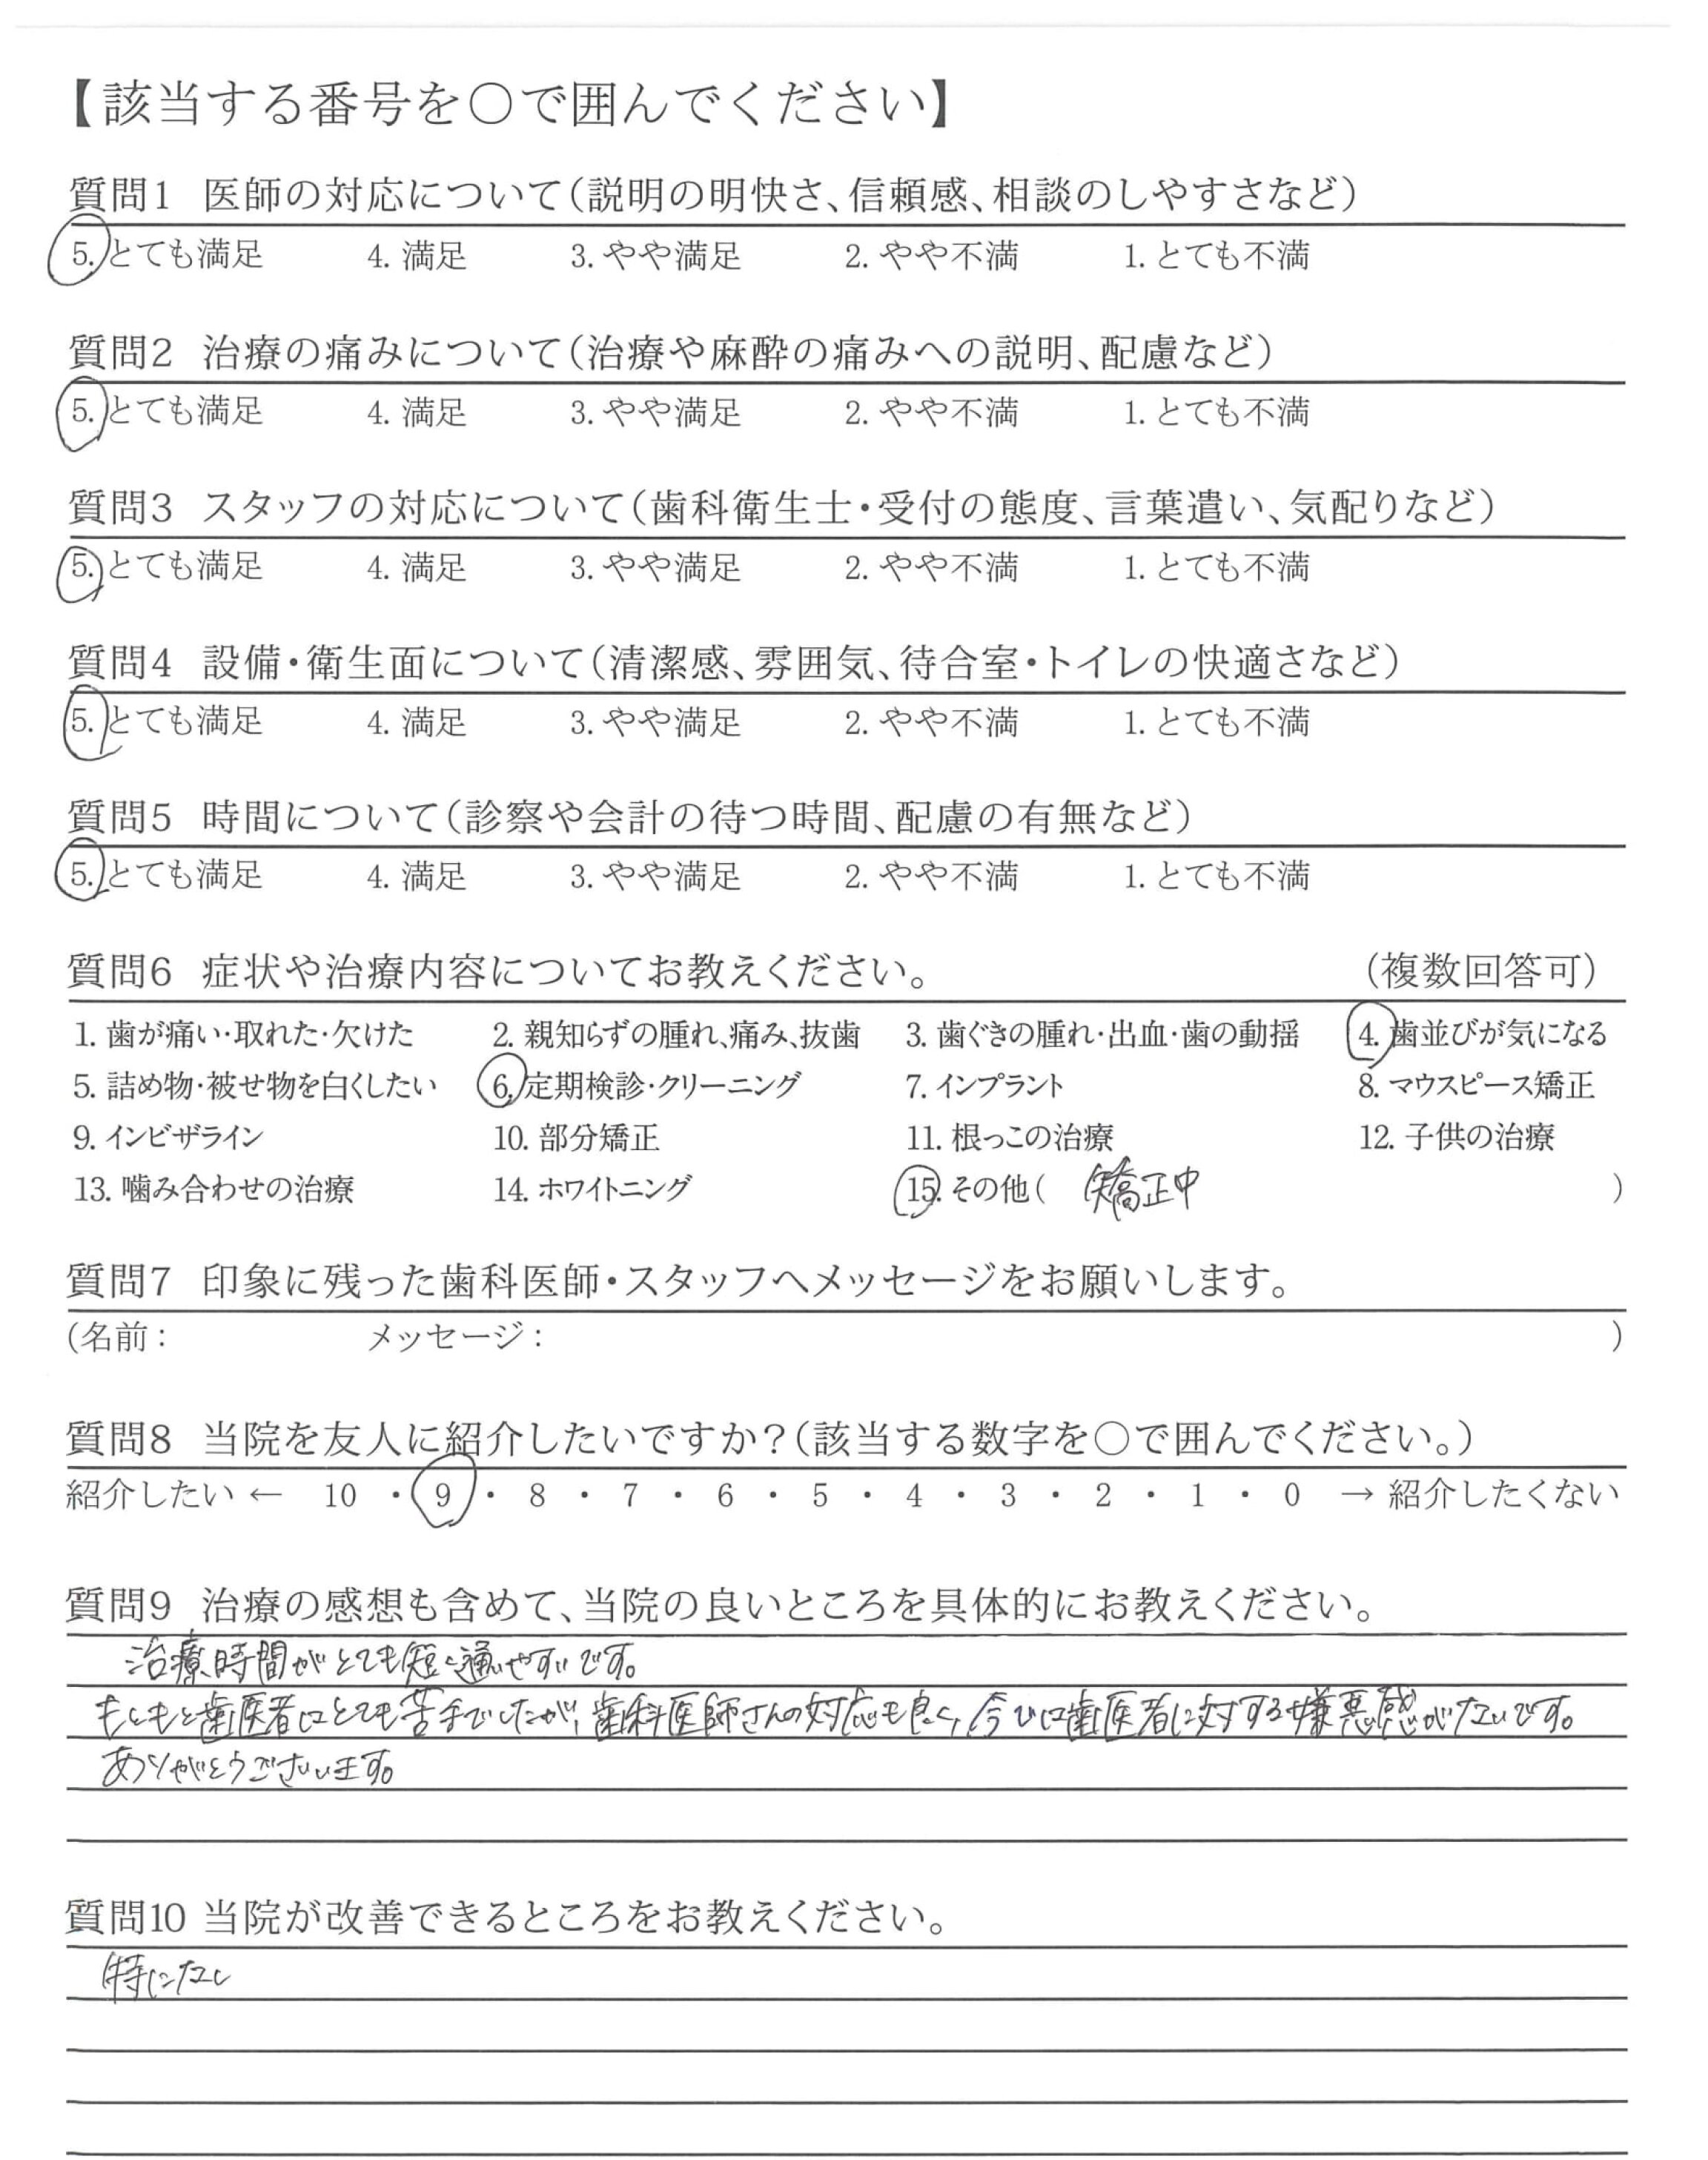 【該当する番号を○で囲んでください】
質問1 医師の対応について(説明の明快さ、信頼感、相談のしやすさなど)
5. とても満足 4. 満足 3. やや満足 2. やや不満 1. とても不満
質問2 治療の痛みについて(治療や麻酔の痛みへの説明、配慮など)
5. とても満足 4. 満足 3. やや満足 2. やや不満 1. とても不満
質問3 スタッフの対応について(歯科衛生士・受付の態度、言葉遣い、気配りなど)
5. とても満足 4. 満足 3. やや満足 2. やや不満 1. とても不満
質問4 設備・衛生面について(清潔感、雰囲気、待合室・トイレの快適さなど)
5. とても満足 4. 満足 3. やや満足 2. やや不満 1. とても不満
質問5 時間について(診察や会計の待つ時間、配慮の有無など)
5. とても満足 4. 満足 3. やや満足 2. やや不満 1. とても不満
質問6 症状や治療内容についてお教えください。 (複数回答可)
1. 歯が痛い・取れた・欠けた 2. 親知らずの腫れ、痛み、抜歯 3. 歯ぐきの腫れ・出血・歯の動揺 4. 歯並びが気になる
5. 詰め物・被せ物を白くしたい 6. 定期検診・クリーニング 7. インプラント 8. マウスピース矯正
9. インビザライン 10. 部分矯正 11. 根っこの治療 12. 子供の治療
13. 噛み合わせの治療 14. ホワイトニング 15. その他( 矯正中 )
質問7 印象に残った歯科医師・スタッフへメッセージをお願いします。
(名前: メッセージ: )
質問8 当院を友人に紹介したいですか?(該当する数字を○で囲んでください。)
紹介したい ← 10 ・ 9 ・ 8 ・ 7 ・ 6 ・ 5 ・ 4 ・ 3 ・ 2 ・ 1 ・ 0 → 紹介したくない
質問9 治療の感想も含めて、当院の良いところを具体的にお教えください。
治療時間がとても短く通いやすいです。
もともと歯医者はとても苦手でしたが、歯科医師さんの対応も良く、今では歯医者に対する嫌悪感がないです。
ありがとうございます。
質問10 当院が改善できるところをお教えください。
特になし